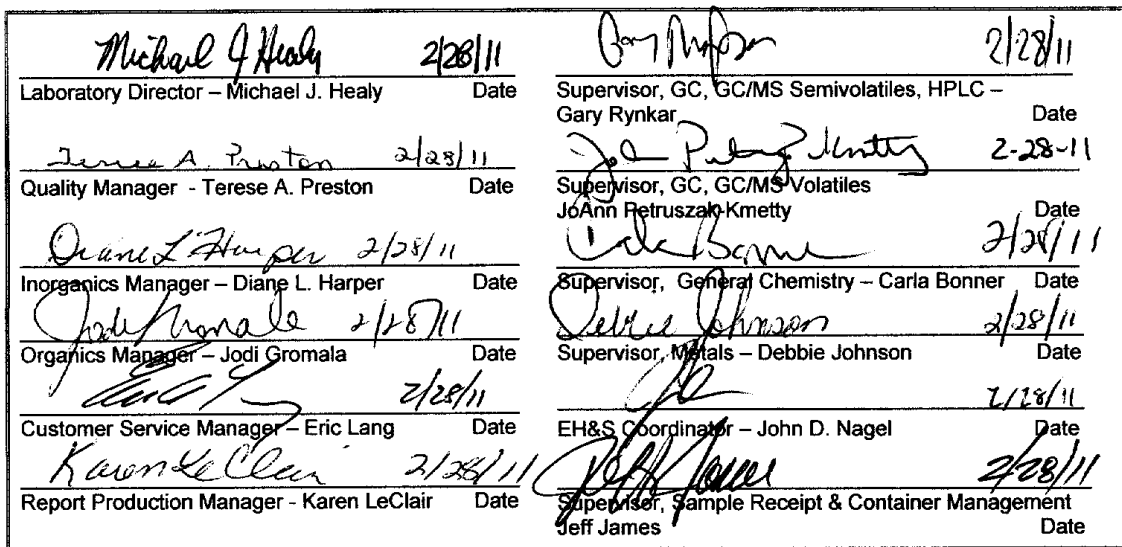 Michael J Healy 2/28/11
Laboratory Director – Michael J. Healy Date
Terese A. Preston 2/28/11
Quality Manager - Terese A. Preston Date
Diane L Harper 2/28/11
Inorganics Manager – Diane L. Harper Date
Jodi Gromala 2/28/11
Organics Manager – Jodi Gromala Date
2/28/11
Customer Service Manager – Eric Lang Date
Karen LeClair 2/28/11
Report Production Manager - Karen LeClair Date
2/28/11
Supervisor, GC, GC/MS Semivolatiles, HPLC –
Gary Rynkar Date
2-28-11
Supervisor, GC, GC/MS Volatiles
JoAnn Petruszak-Kmetty Date
Carla Bonner 2/28/11
Supervisor, General Chemistry – Carla Bonner Date
Debbie Johnson 2/28/11
Supervisor, Metals – Debbie Johnson Date
2/28/11
EH&S Coordinator – John D. Nagel Date
Jeff James 2/28/11
Supervisor, Sample Receipt & Container Management
Jeff James Date